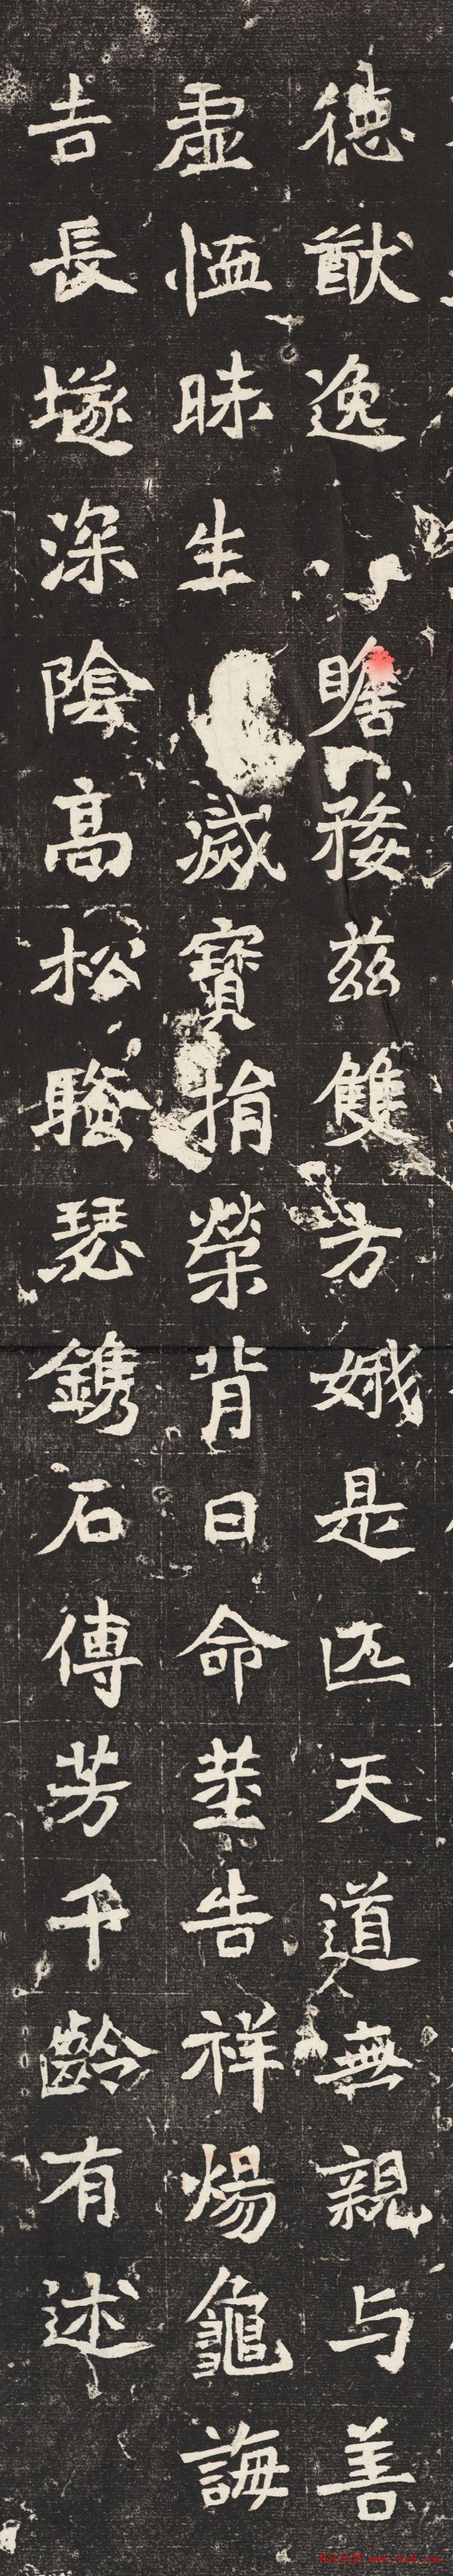 德猷逸瞻婺兹雙方娥是匹天道無親与善
虛恤昧生滅寶捐榮背日命莁告祥煬龜誨
吉長隧深陰高松騷瑟鐫石傳芳千齡有述